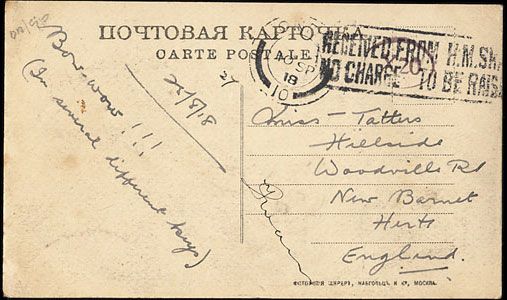 ПОЧТОВАЯ КАРТОЧКА
CARTE POSTALE
10 SP
18
RECEIVED FROM H.M. SH
NO CHARGE TO BE RAIS
Bow-wow!!!
(In several different keys)
24/8/18
Miss Tatters
Hillside
Woodville Rd
New Barnet
Herts
England.
ФОТОТИПІЯ ШЕРЕРЪ, НАБГОЛЬЦЪ И Кº, МОСКВА.